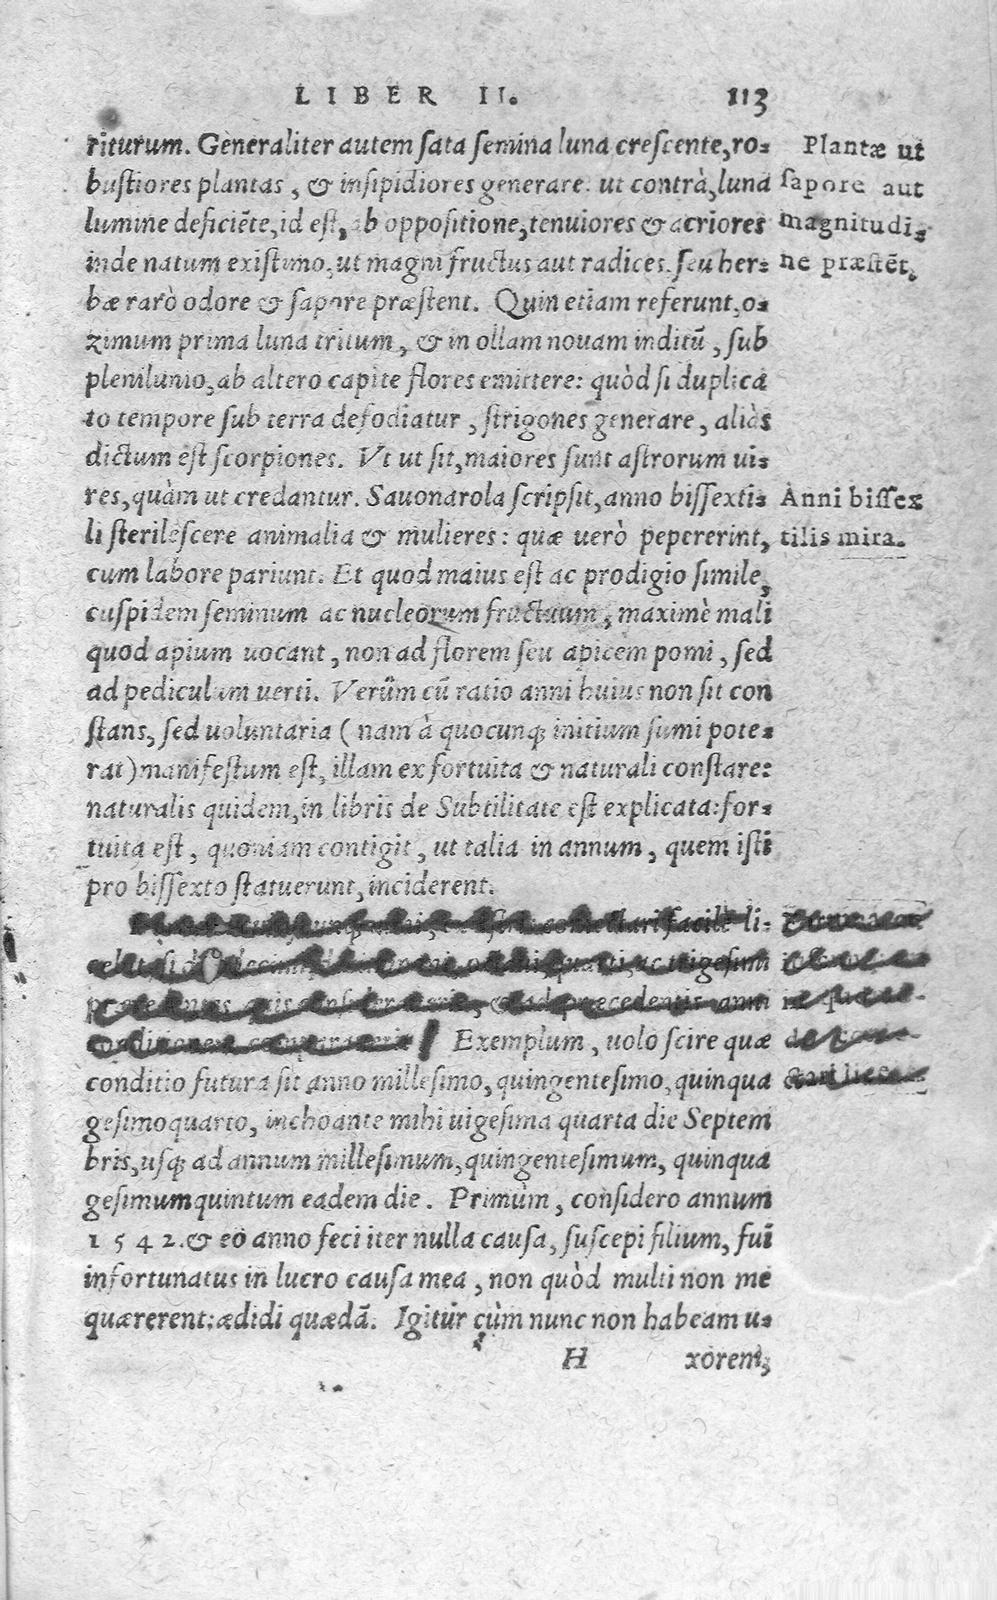 LIBER II. 113
riturum. Generaliter autem sata semina luna crescente, ro-
bustiores plantas, & insipidiores generare: ut contrà, luna
lumine deficiēte, id est, ab oppositione, tenuiores & acriores
inde natum existimo, ut magni fructus aut radices, seu her-
bæ rarò odore & sapore præstent. Quin etiam referunt, o-
zimum prima luna tritum, & in ollam nouam inditū, sub
plenilunio, ab altero capite flores emittere: quòd si duplica
to tempore sub terra defodiatur, strigones generare, aliàs
dictum est scorpiones. Vt ut sit, maiores sunt astrorum ui-
res, quàm ut credantur. Sauonarola scripsit, anno bissexti-
li sterilescere animalia & mulieres: quæ uerò pepererint,
cum labore pariunt. Et quod maius est ac prodigio simile,
cuspidem seminum ac nucleorum fructuum, maximè mali
quod apium uocant, non ad florem seu apicem pomi, sed
ad pediculum uerti. Verùm cū ratio anni huius non sit con
stans, sed uoluntaria (nam à quocunq; initium sumi pote-
rat) manifestum est, illam ex fortuita & naturali constare:
naturalis quidem, in libris de Subtilitate est explicata: for-
tuita est, quoniam contigit, ut talia in annum, quem isti
pro bissexto statuerunt, inciderent.
facilè li-
trigesimi
præcedentis anni
Exemplum, uolo scire quæ
conditio futura sit anno millesimo, quingentesimo, quinqua
gesimoquarto, inchoante mihi uigesima quarta die Septem
bris, usq; ad annum millesimum, quingentesimum, quinqua
gesimumquintum eadem die. Primùm, considero annum
1542. & eo anno feci iter nulla causa, suscepi filium, fui
infortunatus in lucro causa mea, non quòd multi non me
quærerent: ædidi quædā. Igitur cùm nunc non habeam u-
H xorem,
Plantæ ut
sapore aut
magnitudi-
ne præstēt.
Anni bissex
tilis mira.